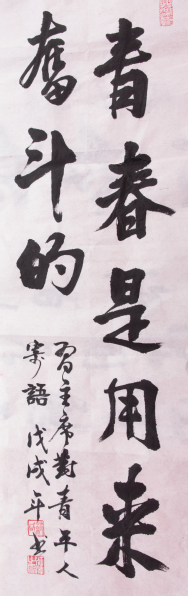 青春是用来
奋斗的
習主席對青年人
寄語 戊戌年 书